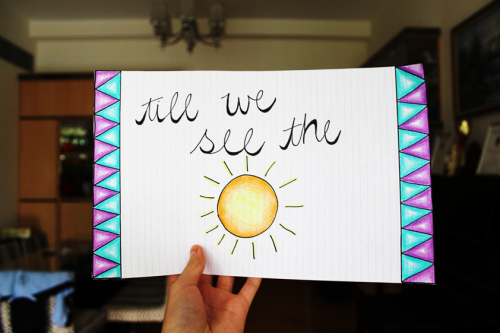 till we
see the